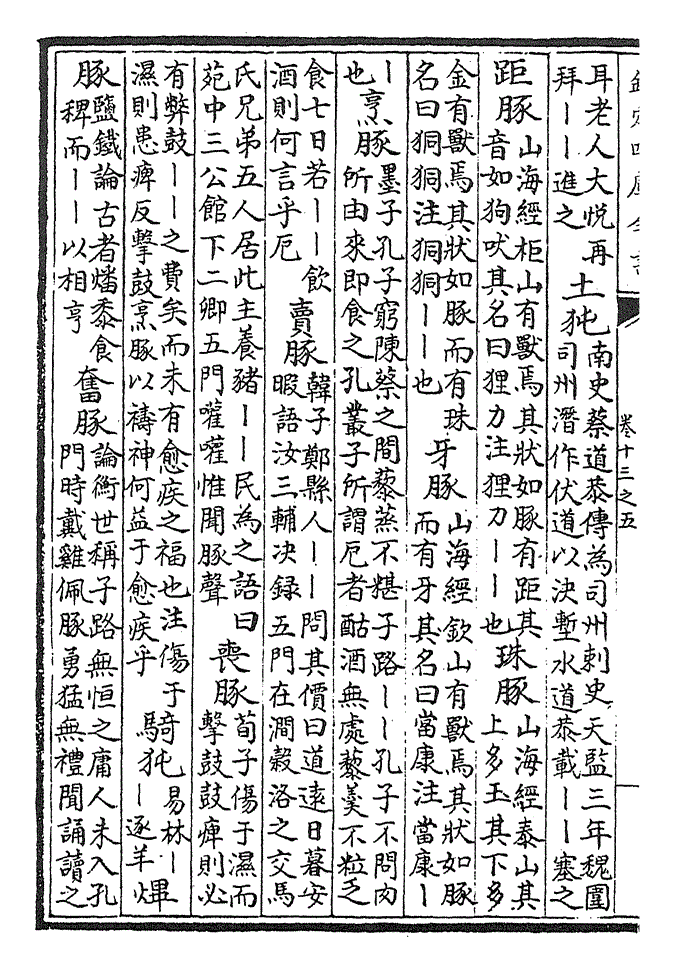 欽定四庫全書 卷十三之五
耳老人大悦再
拜丨丨進之
土㹠
南史蔡道恭傳為司州刺史天監三年魏圍
司州潛作伏道以決塹水道恭載丨丨塞之
距豚
山海經柜山有獸焉其狀如豚有距其
音如狗吠其名曰狸力注狸力丨丨也
珠豚
山海經泰山其
上多玉其下多
金有獸焉其狀如豚而有珠
名曰狪狪注狪狪丨丨也
牙豚
山海經欽山有獸焉其狀如豚
而有牙其名曰當康注當康丨
丨
也
烹豚
墨子孔子窮陳蔡之間藜蒸不糂子路丨丨孔子不問肉
所由來即食之孔叢子所謂厄者酤酒無處藜羹不粒乏
食七日若丨丨飲
酒則何言乎厄
賣豚
韓子鄭縣人丨丨問其價曰道遠日暮安
暇語汝三輔决録五門在澗穀洛之交馬
氏兄弟五人居此主養豬丨丨民為之語曰
苑中三公館下二卿五門嚾嚾惟聞豚聲
喪豚
荀子傷于濕而
擊鼓鼓痺則必
有弊鼓丨丨之費矣而未有愈疾之福也注傷于
濕則患痺反擊鼓烹豚以禱神何益于愈疾乎
騎㹠
易林丨
丨逐羊
熚
豚
鹽鐵論古者燔黍食
稗而丨丨以相亨
奮豚
論衡世稱子路無恒之庸人未入孔
門時戴雞佩豚勇猛無禮聞誦讀之